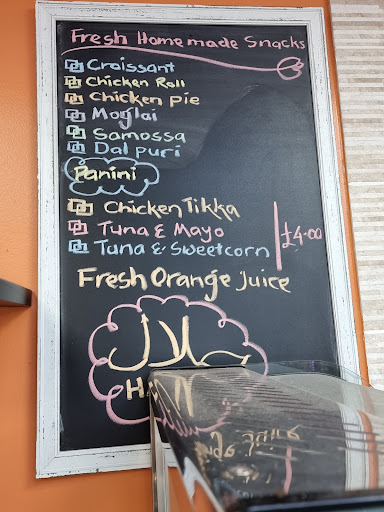 Fresh Homemade Snacks
Croissant
Chicken Roll
Chicken Pie
Moglai
Samossa
Dal puri
Panini
Chicken Tikka
Tuna & Mayo
Tuna & Sweetcorn
£4.00
Fresh Orange Juice
حلال